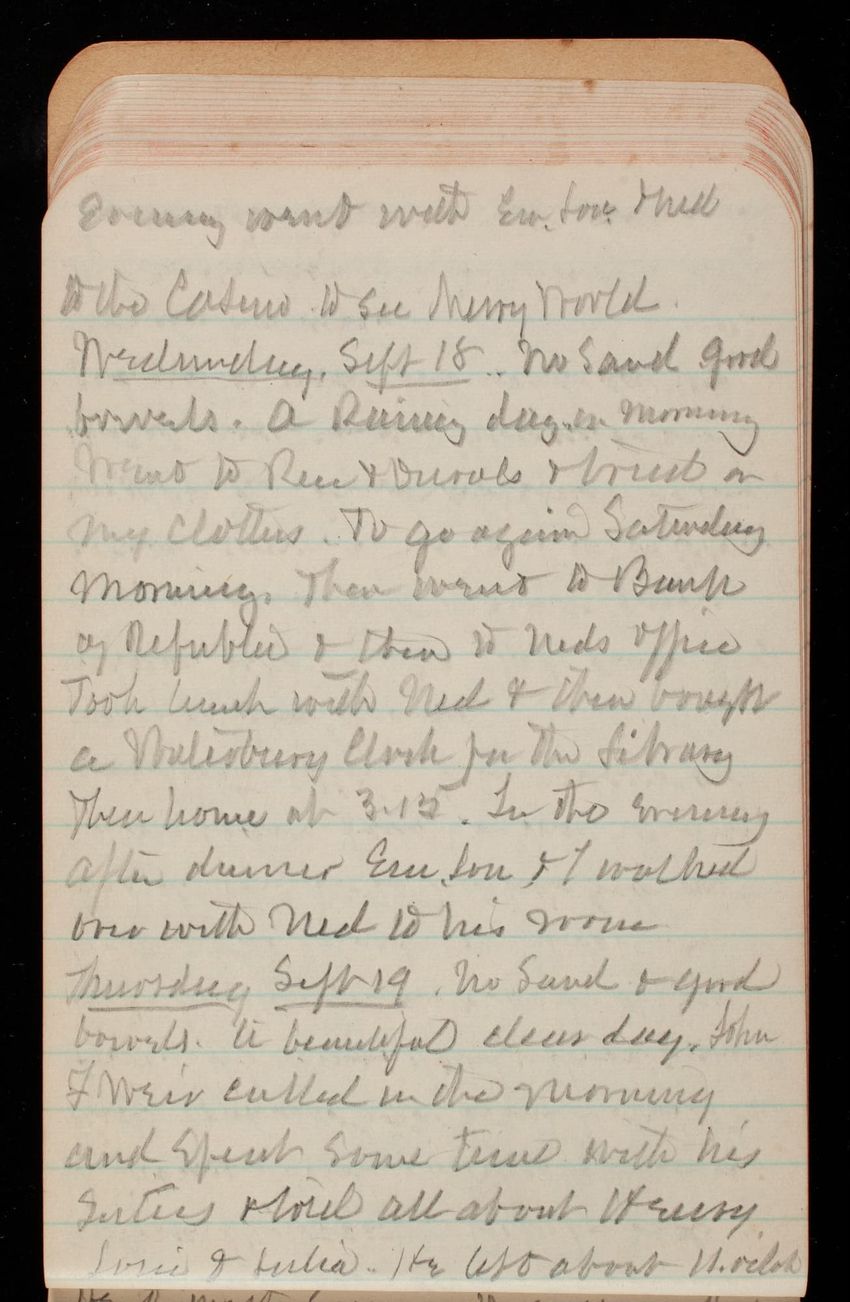 Evening went with Em. Lou. & Ned
to the Casino to see Merry World.
Wednesday, Sept 18.. No Sand good
bowels. A Rainy day. in morning
Went to Rice & Duvals & tried on
my Clothes. To go again Saturday
Morning. Then went to Bank
of Republic & then to Neds office
Took lunch with Ned & then bought
a Clock for the Library
Then home at 3.15. In the evening
after dinner Em. Lou & I walked
over with Ned to his room
Thursday Sept 19. No Sand & good
bowels. A beautiful clear day. John
F Weir called in the morning
and Spent Some time with his
Sisters & told all about Henry
& Julia. He left about 11. oclock